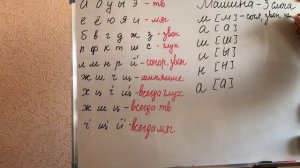 а о у ы э - тв
е ё ю я и - мяг
б в г д ж з - звон
п ф к т ш с - глух
л м н р й - сонор, звон
ж ш ч щ - шипящие
х ц ч щ - всегда глух
ж ш ц - всегда тв
ч' щ' й' - всегда мяг
Машина - 3 слога
м [м] - сонор, звон
а [а]
ш [ш]
и [ы]
н [н]
а [а]